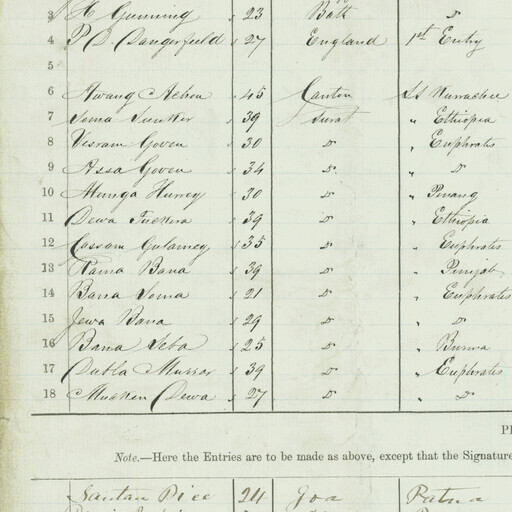 3 H Gunning 23 Bath D
4 P D Dangerfield 27 England 1st Entry
5
6 Awang Achou 45 Canton SS
7 Soma Sunker 39 Surat " Ethiopia
8 Vesram Goven 30 D " Euphrates
9 Assa Goven 34 D " D
10 Munga Hurrey 30 D " Penang
11 Dewa Fuckira 39 D " Ethiopia
12 Cassam 35 D " Euphrates
13 Rama Bana 39 D " Punjab
14 Bana Soma 21 D " Euphrates
15 Jewa Bana 29 D " D
16 Bana Seba 25 D " Burma
17 Dubla 39 D " Euphrates
18 Dewa 27 D " D
Note.—Here the Entries are to be made as above, except that the Signature
Santan Dice 24 Goa Patna